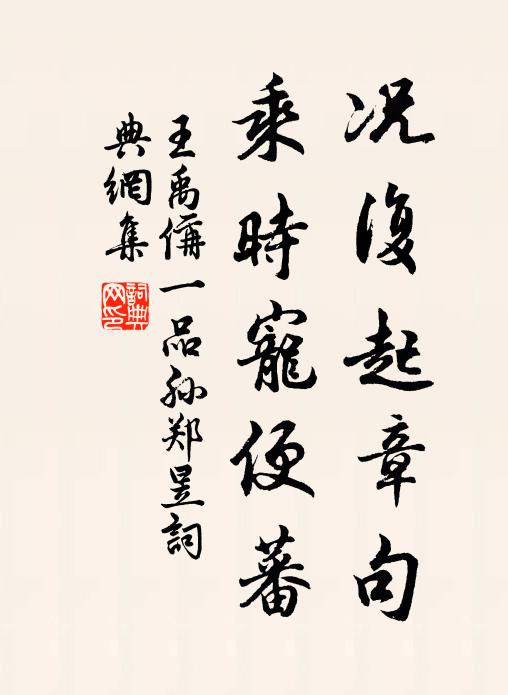 况復起章句
乘時寵便蕃
王禹偁一品孙郑昱詞
典網集
詞典网印